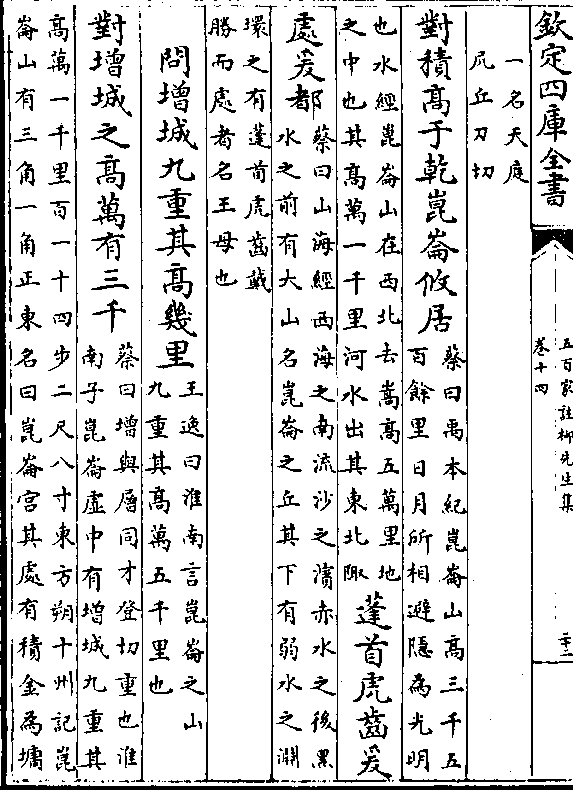 欽定四庫全書
五百家註柳先生集
卷十四
二十二
一名天庭
凥丘刀切
對積高于乾崑崙攸居
蔡曰禹本紀崑崙山高三千五
百餘里日月所相避隱為光明
也水經崑崙山在西北去嵩高五萬里地
之中也其高萬一千里河水出其東北陬
蓬首虎齒爰
處爰都
蔡曰山海經西海之南流沙之濱赤水之後黑
水之前有大山名崑崙之丘其下有弱水之淵
環之有蓬首虎齒戴
勝而處者名王母也
問增城九重其高幾里
王逸曰淮南言崑崙之山
九重其高萬五千里也
對增城之高萬有三千
蔡曰增與層同才登切重也淮
南子崑崙虛中有増城九重其
高萬一千里百一十四步二尺八寸東方朔十州記崑
崙山有三角一角正東名曰崑崙宫其處有積金為墉